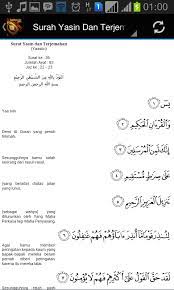 01:00
Surah Yasin Dan Terjem
Surat Yasin dan Terjemahan
(Yaasiin)
Surat ke : 36
Jumlah Ayat : 83
Juz ke : 22 - 23
أَعُوْذُ بِاللهِ مِنَ الشَّيْطَانِ الرَّجِيْمِ
بِسْمِ اللهِ الرَّحْمٰنِ الرَّحِيْمِ
يس ﴿١﴾
Yaa siin
وَالْقُرْآنِ الْحَكِيمِ ﴿٢﴾
Demi Al Quran yang penuh hikmah,
إِنَّكَ لَمِنَ الْمُرْسَلِينَ ﴿٣﴾
Sesungguhnya kamu salah seorang dari rasul-rasul,
عَلَى صِرَاطٍ مُسْتَقِيمٍ ﴿٤﴾
(yang berada) diatas jalan yang lurus,
تَنْزِيلَ الْعَزِيزِ الرَّحِيمِ ﴿٥﴾
(sebagai wahyu) yang diturunkan oleh Yang Maha Perkasa lagi Maha Penyayang,
لِتُنْذِرَ قَوْمًا مَا أُنْذِرَ آبَاؤُهُمْ فَهُمْ غَافِلُونَ ﴿٦﴾
Agar kamu memberi peringatan kepada kaum yang bapak-bapak mereka belum pernah diberi peringatan, karena itu mereka lalai.
لَقَدْ حَقَّ الْقَوْلُ عَلَى أَكْثَرِهِمْ فَهُمْ لَا يُؤْمِنُونَ ﴿٧﴾
Sesungguhnya telah pasti